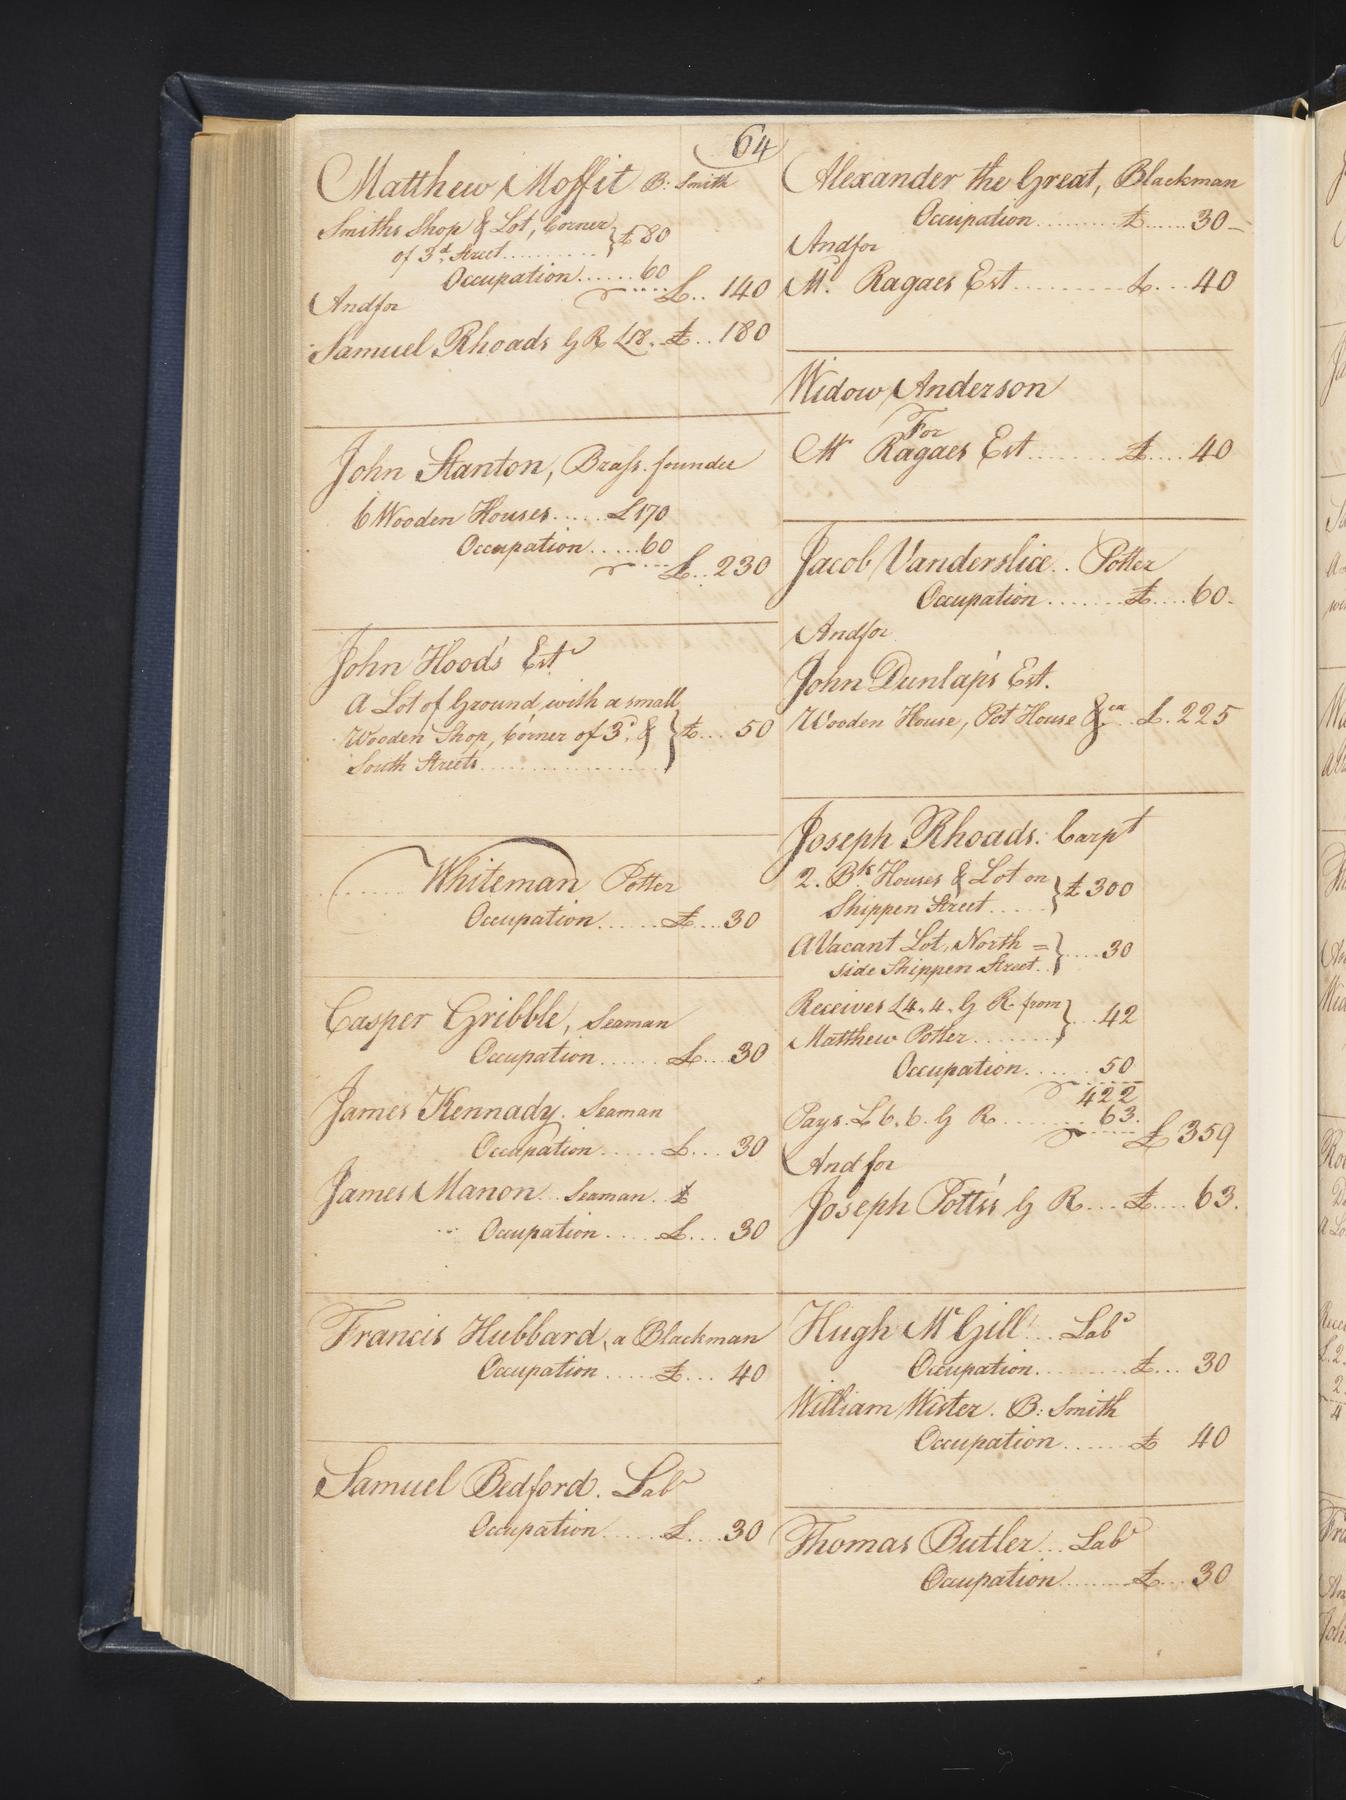 64
Matthew Moffit B: Smith
Smiths Shop & Lot, Corner
of 3d. Street.......... } £ 80
Occupation...... 60
£.. 140
Andfor
Samuel Rhoads G R £18. £.. 180
John Stanton, Brass founder
6 Wooden Houses..... £170
Occupation..... 60
£.. 230
John Hood's Est
A Lot of Ground, with a small
Wooden Shop, Corner of 3d. & } £... 50
South Streets....................
....... Whiteman Potter
Occupation...... £... 30
Casper Gribble, Seaman
Occupation...... £... 30
James Kennady. Seaman
Occupation..... £... 30
James Manon.. Seaman. £
Occupation.... £... 30
Francis Hubbard, a Blackman
Occupation..... £... 40
Samuel Bedford. Labr
Occupation...... £... 30
Alexander the Great, Blackman
Occupation......... £...... 30
Andfor
Mr. Ragaes Est.......... £... 40
Widow Anderson
For
Mr Ragaes Est........ £.... 40
Jacob Vanderslice.. Potter
Occupation....... £.... 60.
Andfor
John Dunlap's Est.
Wooden House, Pot House &ca... £. 225
Joseph Rhoads. Carpt
2. Bk Houses & Lot on
Shippen Street..... } £ 300
A Vacant Lot, North =
side Shippen Street.. } .... 30
Receives £4.4. G R. from
Matthew Potter........ } ... 42
Occupation..... 50
422
Pays. £6.6. G R....... 63.
£ 359
And for
Joseph Potts's G R... £.... 63.
Hugh McGill... Labr
Occupation......... £... 30
William Wister. B: Smith
Occupation...... £ 40
Thomas Butler... Labr
Ocupation......... £... 30